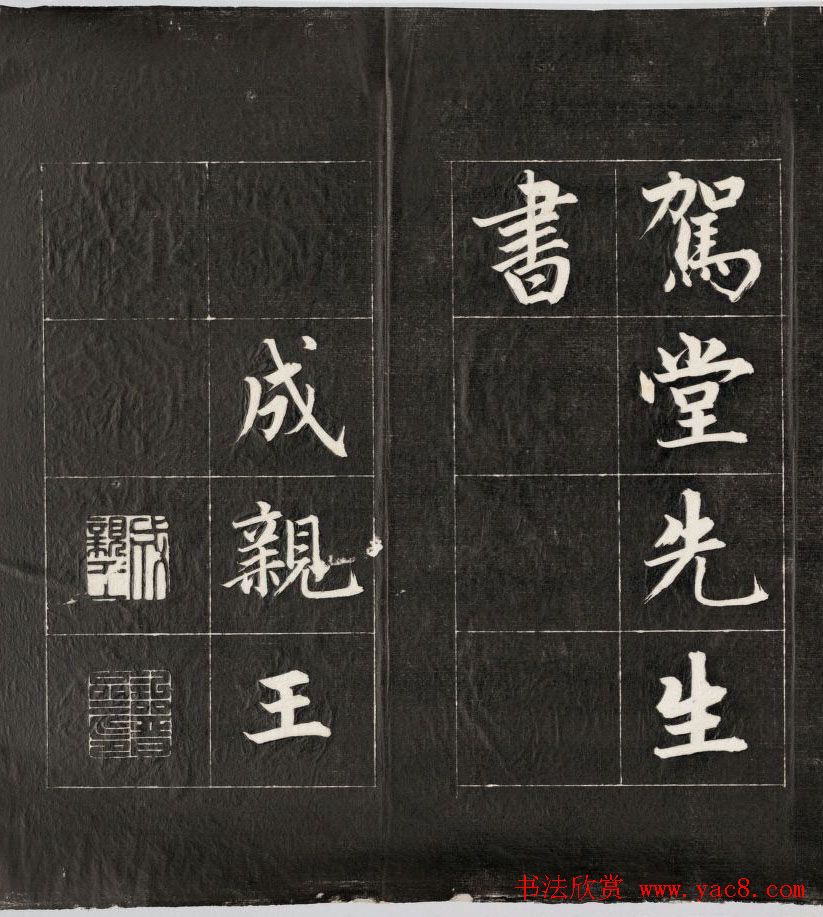 駕堂先生
書
成親王
成親王
书法欣赏 www.yac8.com